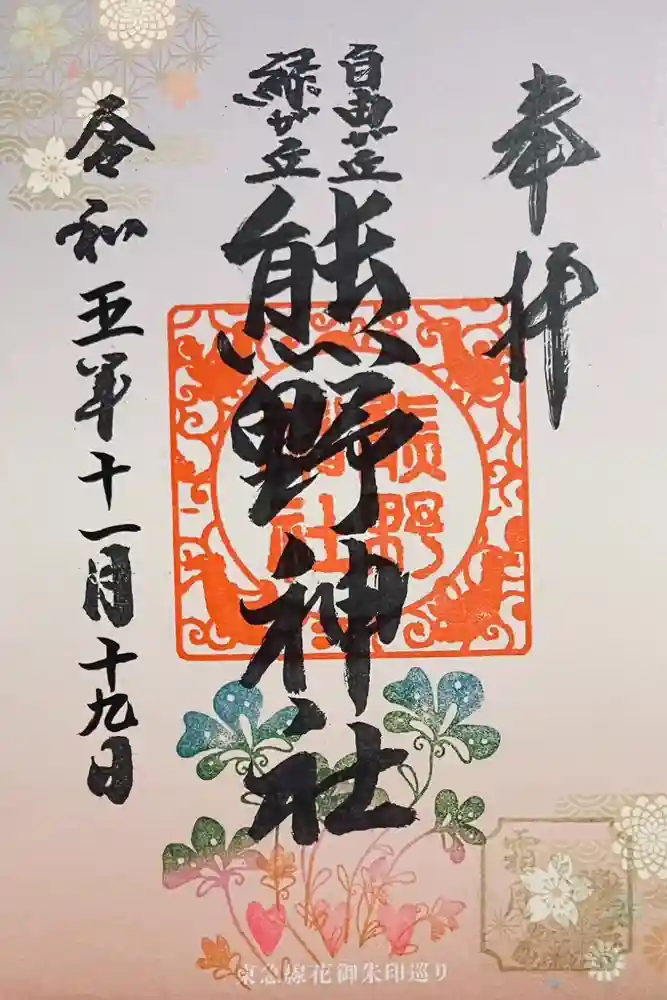 奉拝
自由が丘
緑が丘
熊野神社
熊野
神社
令和五年十一月十九日
霜月
東急線花御朱印巡り